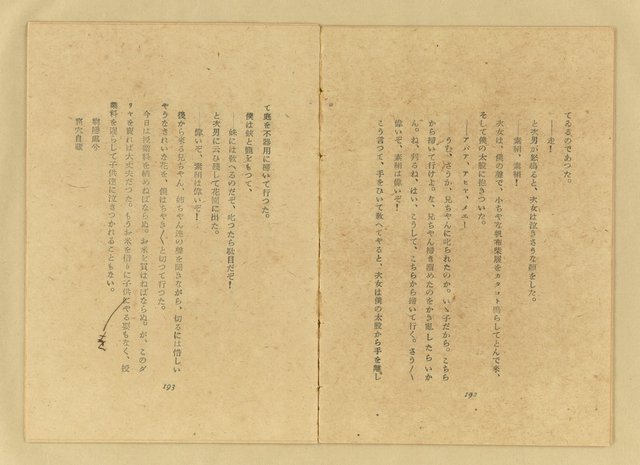 てゐるのであつた。
――走！
と次男が怒鳴ると、次女は泣きさうな顔をした。
――素絹、素絹！
次女は、僕の聲で、小ちやな帆布柴履をカタコト鳴らしてとんで來、
そして僕の太股に抱きついた。
――アバア、アヒァ、メエ――
うむ、さうか、兄ちやんに叱られたのか。いゝ子だから。こちら
から掃いて行けよ。な、兄ちやん掃き溜めたのをかき亂したらいか
ん。ね、判るね、はい、こうして、こちらから掃いて行く。さう／＼
偉いぞ、素絹は偉いぞ！
こう言つて、手をひいて教へてやると、次女は僕の太股から手を離し
192
て庭を不器用に掃いて行つた。
僕は鋏と籠をもつて、
――妹には教へるのだぞ、叱つたら駄目だぞ！
と次男に云ひ殘して花園に出た。
――偉いぞ、素絹は偉いぞ！
後から來る兄ちやん、姉ちやん達の聲を聞きながら、切るには惜しい
やうなきれいな花を、僕はちやき／＼と切つて行つた。
今日は授業料を納めねばならぬ。お米を買はねばならぬ。が、このダ
リヤを賣れば大丈夫だつた。もうお米を借りに子供にやる要もなく、授
業料を遲らして子供達に泣きつかれることもない。
193